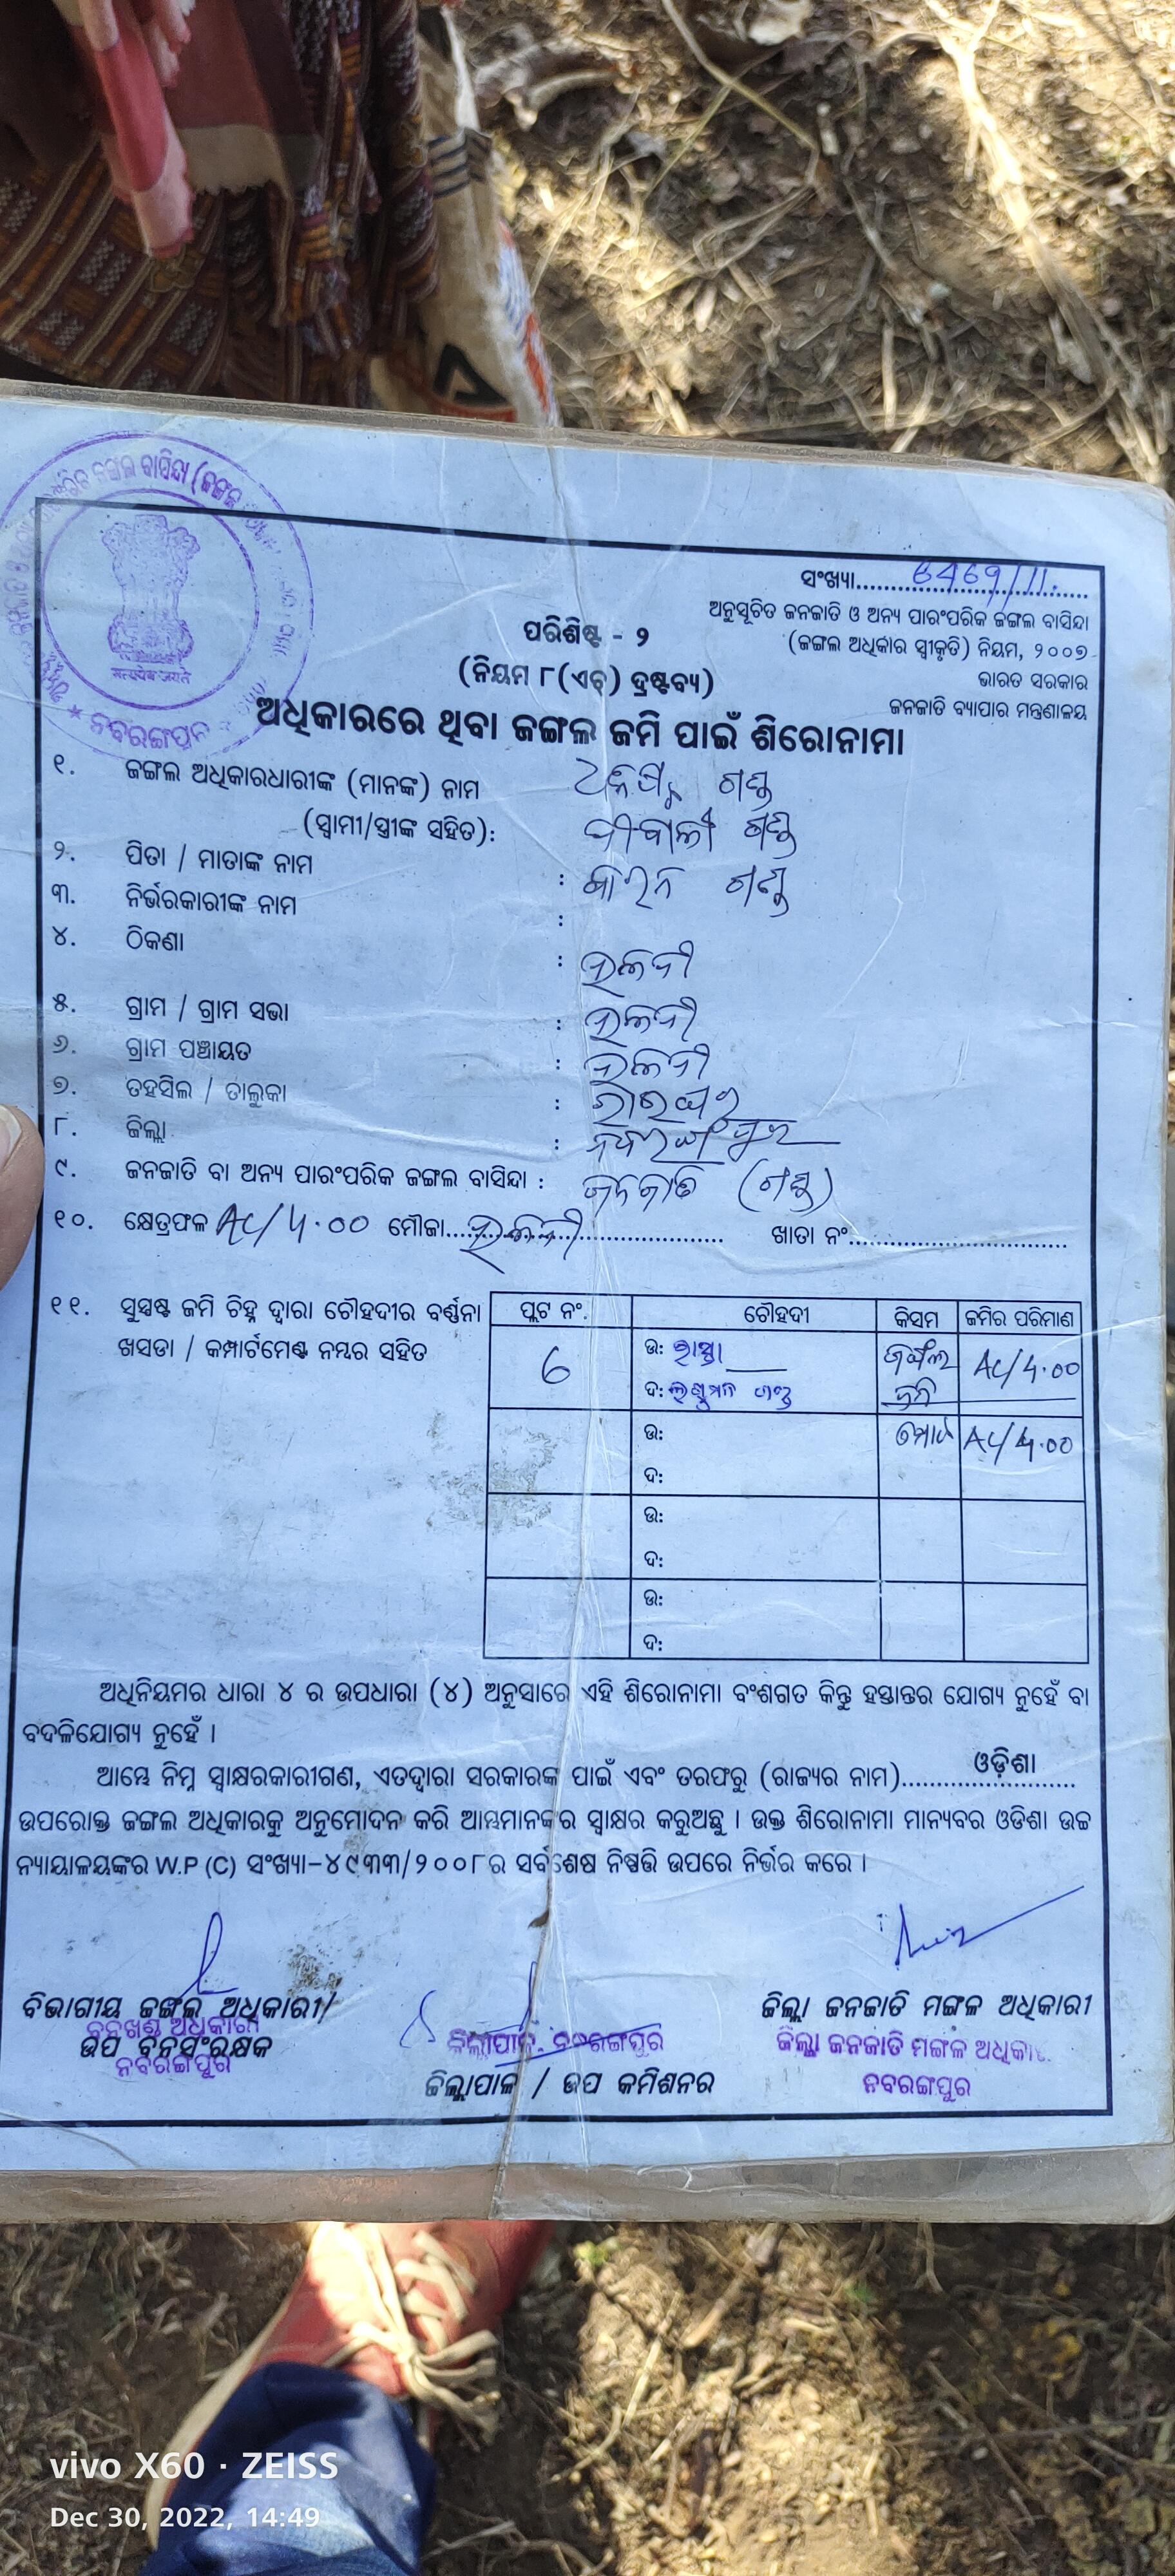 ସଂଖ୍ୟା....................
ଅନୁସୂଚିତ ଜନଜାତି ଓ ଅନ୍ୟ ପାରଂପରିକ ଜଙ୍ଗଲ ବାସିନ୍ଦା
(ଜଙ୍ଗଲ ଅଧିକାର ସ୍ୱୀକୃତି) ନିୟମ, ୨୦୦୭
ଭାରତ ସରକାର
ଜନଜାତି ବ୍ୟାପାର ମନ୍ତ୍ରଣାଳୟ
ପରିଶିଷ୍ଟ - ୨
(ନିୟମ ୮(ଏଚ୍) ଦ୍ରଷ୍ଟବ୍ୟ)
सत्यमेव जयते
ନବରଙ୍ଗପୁର
ଅଧିକାରରେ ଥିବା ଜଙ୍ଗଲ ଜମି ପାଇଁ ଶିରୋନାମା
୧. ଜଙ୍ଗଲ ଅଧିକାରଧାରୀଙ୍କ (ମାନଙ୍କ) ନାମ ଗଣ୍ଡ
(ସ୍ୱାମୀ/ସ୍ତ୍ରୀଙ୍କ ସହିତ): ଗଣ୍ଡ
୨. ପିତା / ମାତାଙ୍କ ନାମ : ଗଣ୍ଡ
୩. ନିର୍ଭରକାରୀଙ୍କ ନାମ :
୪. ଠିକଣା :
୫. ଗ୍ରାମ / ଗ୍ରାମ ସଭା :
୬. ଗ୍ରାମ ପଞ୍ଚାୟତ :
୭. ତହସିଲ / ତାଲୁକା : ରାଇଘର
୮. ଜିଲ୍ଲା : ନବରଙ୍ଗପୁର
୯. ଜନଜାତି ବା ଅନ୍ୟ ପାରଂପରିକ ଜଙ୍ଗଲ ବାସିନ୍ଦା : ଜନଜାତି (ଗଣ୍ଡ)
୧୦. କ୍ଷେତ୍ରଫଳ Ac/4.00 ମୌଜା.................... ଖାତା ନଂ....................
୧୧. ସୁସ୍ପଷ୍ଟ ଜମି ଚିହ୍ନ ଦ୍ୱାରା ଚୌହଦୀର ବର୍ଣ୍ଣନା
ଖସଡା / କମ୍ପାର୍ଟମେଣ୍ଟ ନମ୍ବର ସହିତ
ପ୍ଲଟ ନଂ. ଚୌହଦୀ କିସମ ଜମିର ପରିମାଣ
6 ଉ: ରାସ୍ତା ଜଙ୍ଗଲ Ac/4.00
ଦ: ଗଣ୍ଡ ଜମି
ଉ: ମୋଟ Ac/4.00
ଦ:
ଉ:
ଦ:
ଉ:
ଦ:
ଅଧିନିୟମର ଧାରା ୪ ର ଉପଧାରା (୪) ଅନୁସାରେ ଏହି ଶିରୋନାମା ବଂଶଗତ କିନ୍ତୁ ହସ୍ତାନ୍ତର ଯୋଗ୍ୟ ନୁହେଁ ବା
ବଦଳିଯୋଗ୍ୟ ନୁହେଁ ।
ଆମ୍ଭେ ନିମ୍ନ ସ୍ୱାକ୍ଷରକାରୀଗଣ, ଏତଦ୍ୱାରା ସରକାରଙ୍କ ପାଇଁ ଏବଂ ତରଫରୁ (ରାଜ୍ୟର ନାମ)....ଓଡ଼ିଶା....
ଉପରୋକ୍ତ ଜଙ୍ଗଲ ଅଧିକାରକୁ ଅନୁମୋଦନ କରି ଆମ୍ଭମାନଙ୍କର ସ୍ୱାକ୍ଷର କରୁଅଛୁ । ଉକ୍ତ ଶିରୋନାମା ମାନ୍ୟବର ଓଡିଶା ଉଚ୍ଚ
ନ୍ୟାୟାଳୟଙ୍କର W.P (C) ସଂଖ୍ୟା-୪୯୩୩/୨୦୦୮ର ସର୍ବଶେଷ ନିଷ୍ପତ୍ତି ଉପରେ ନିର୍ଭର କରେ ।
ବିଭାଗୀୟ ଜଙ୍ଗଲ ଅଧିକାରୀ/
ବନଖଣ୍ଡ ଅଧିକାରୀ
ଉପ ବନସଂରକ୍ଷକ
ନବରଙ୍ଗପୁର
ଜିଲ୍ଲାପାଳ, ନବରଙ୍ଗପୁର
ଜିଲ୍ଲାପାଳ / ଉପ କମିଶନର
ଜିଲ୍ଲା ଜନଜାତି ମଙ୍ଗଳ ଅଧିକାରୀ
ଜିଲ୍ଲା ଜନଜାତି ମଙ୍ଗଳ ଅଧିକାରୀ
ନବରଙ୍ଗପୁର
vivo X60 · ZEISS
Dec 30, 2022, 14:49